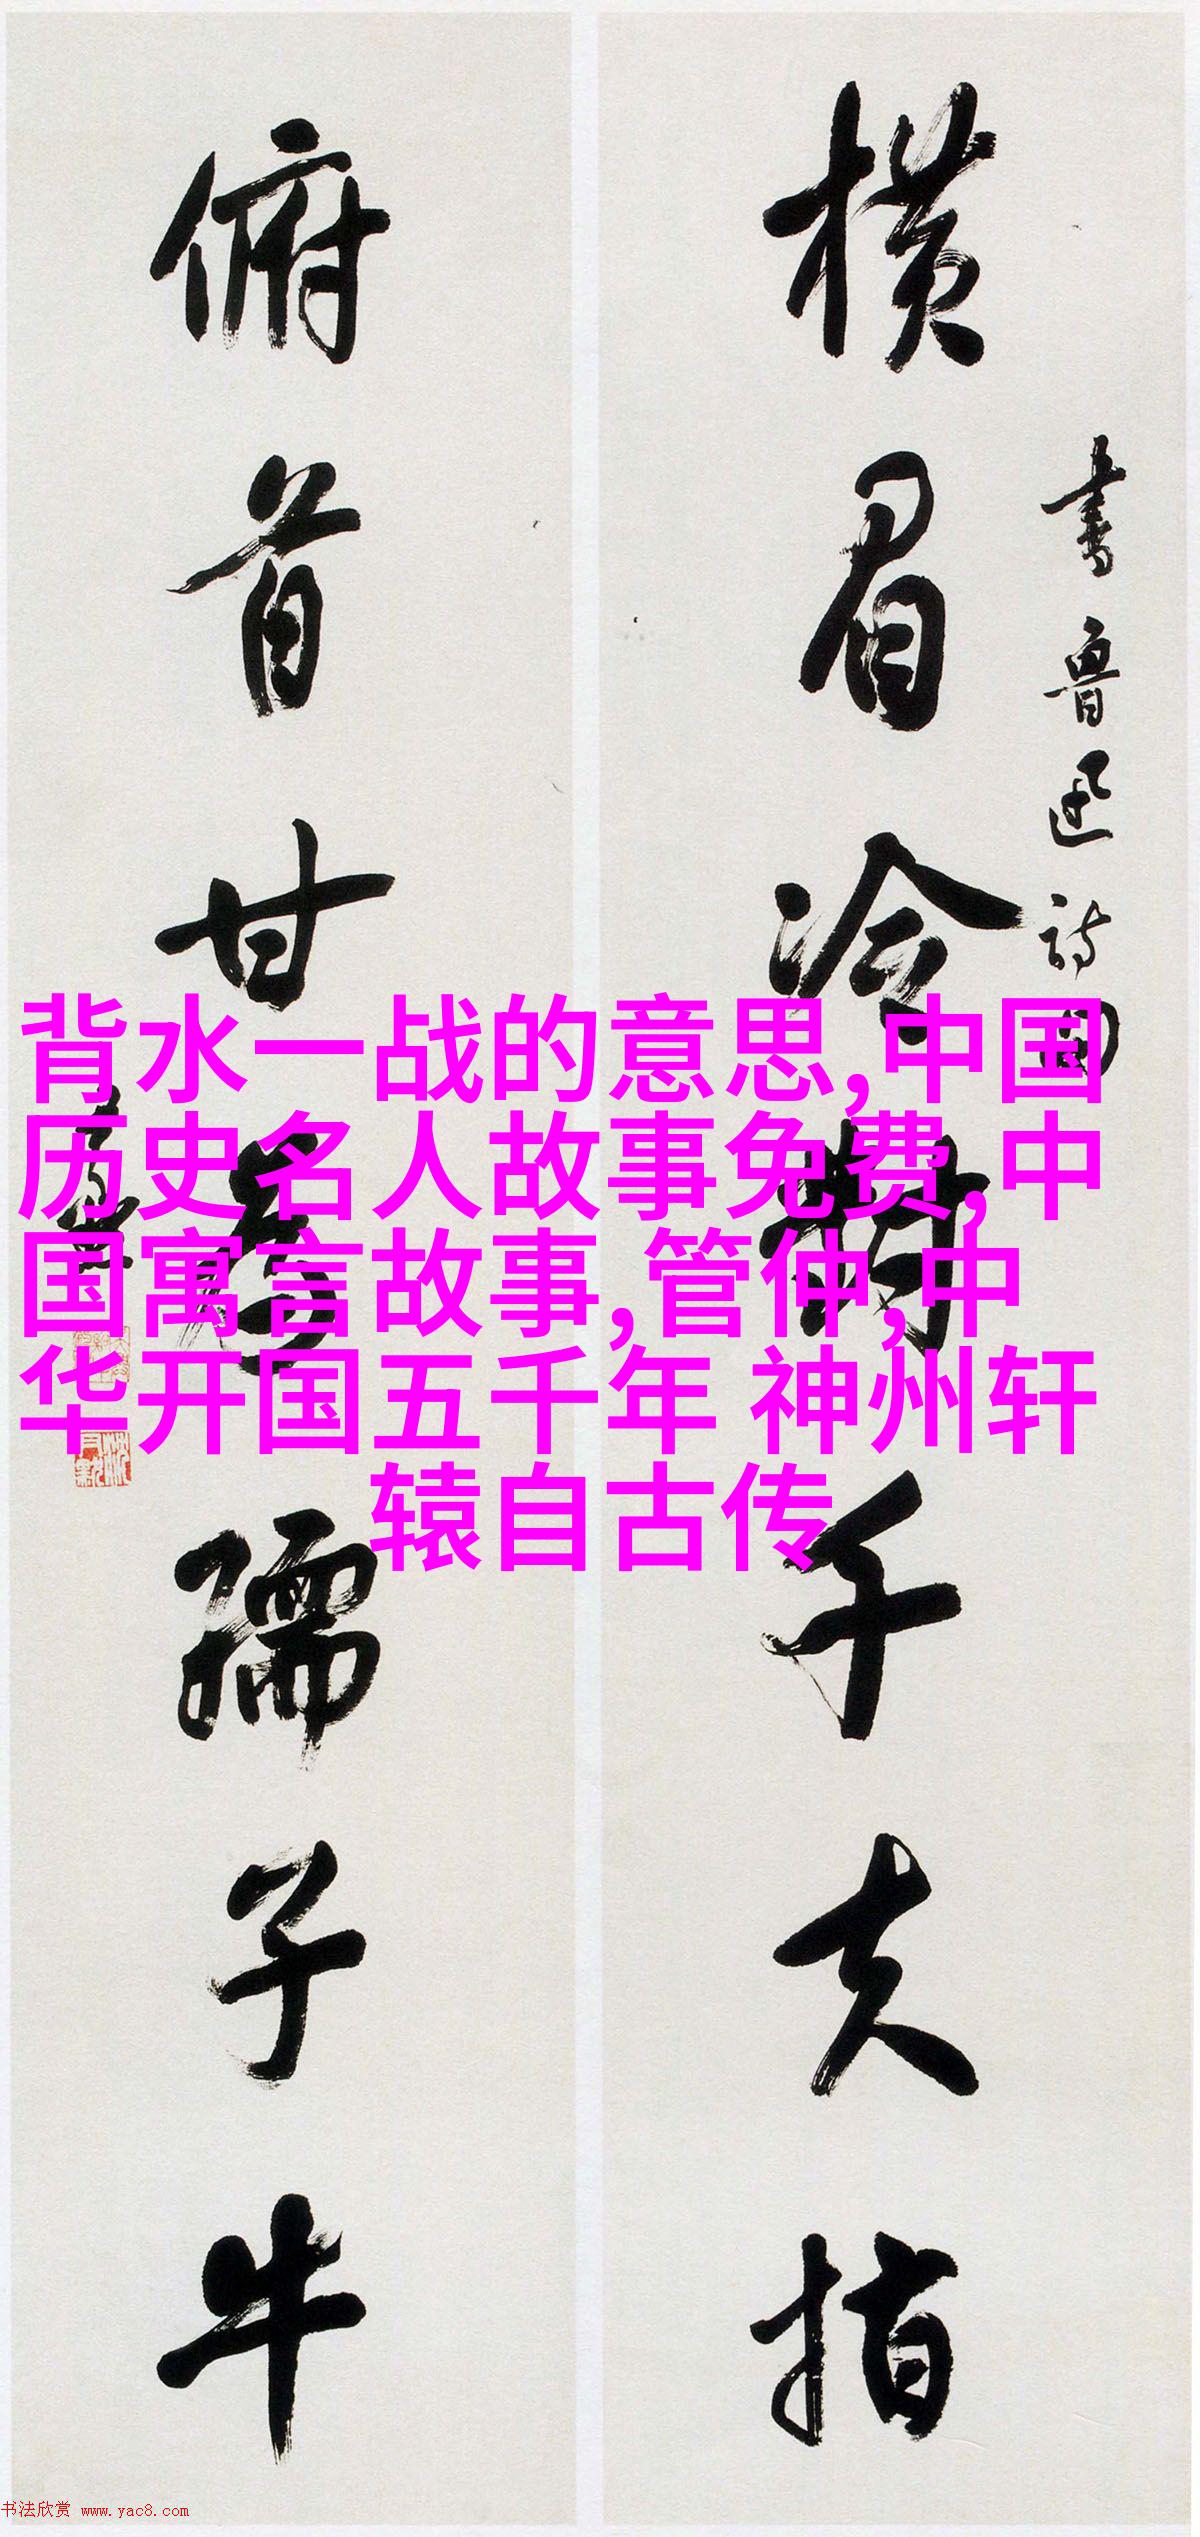 横眉冷对千夫指
书鲁迅诗句
俯首甘为孺子牛
背水一战的意思,中国
历史名人故事免费,中
国寓言故事,管仲,中
华开国五千年 神州轩
辕自古传
书法欣赏 www.yac8.com